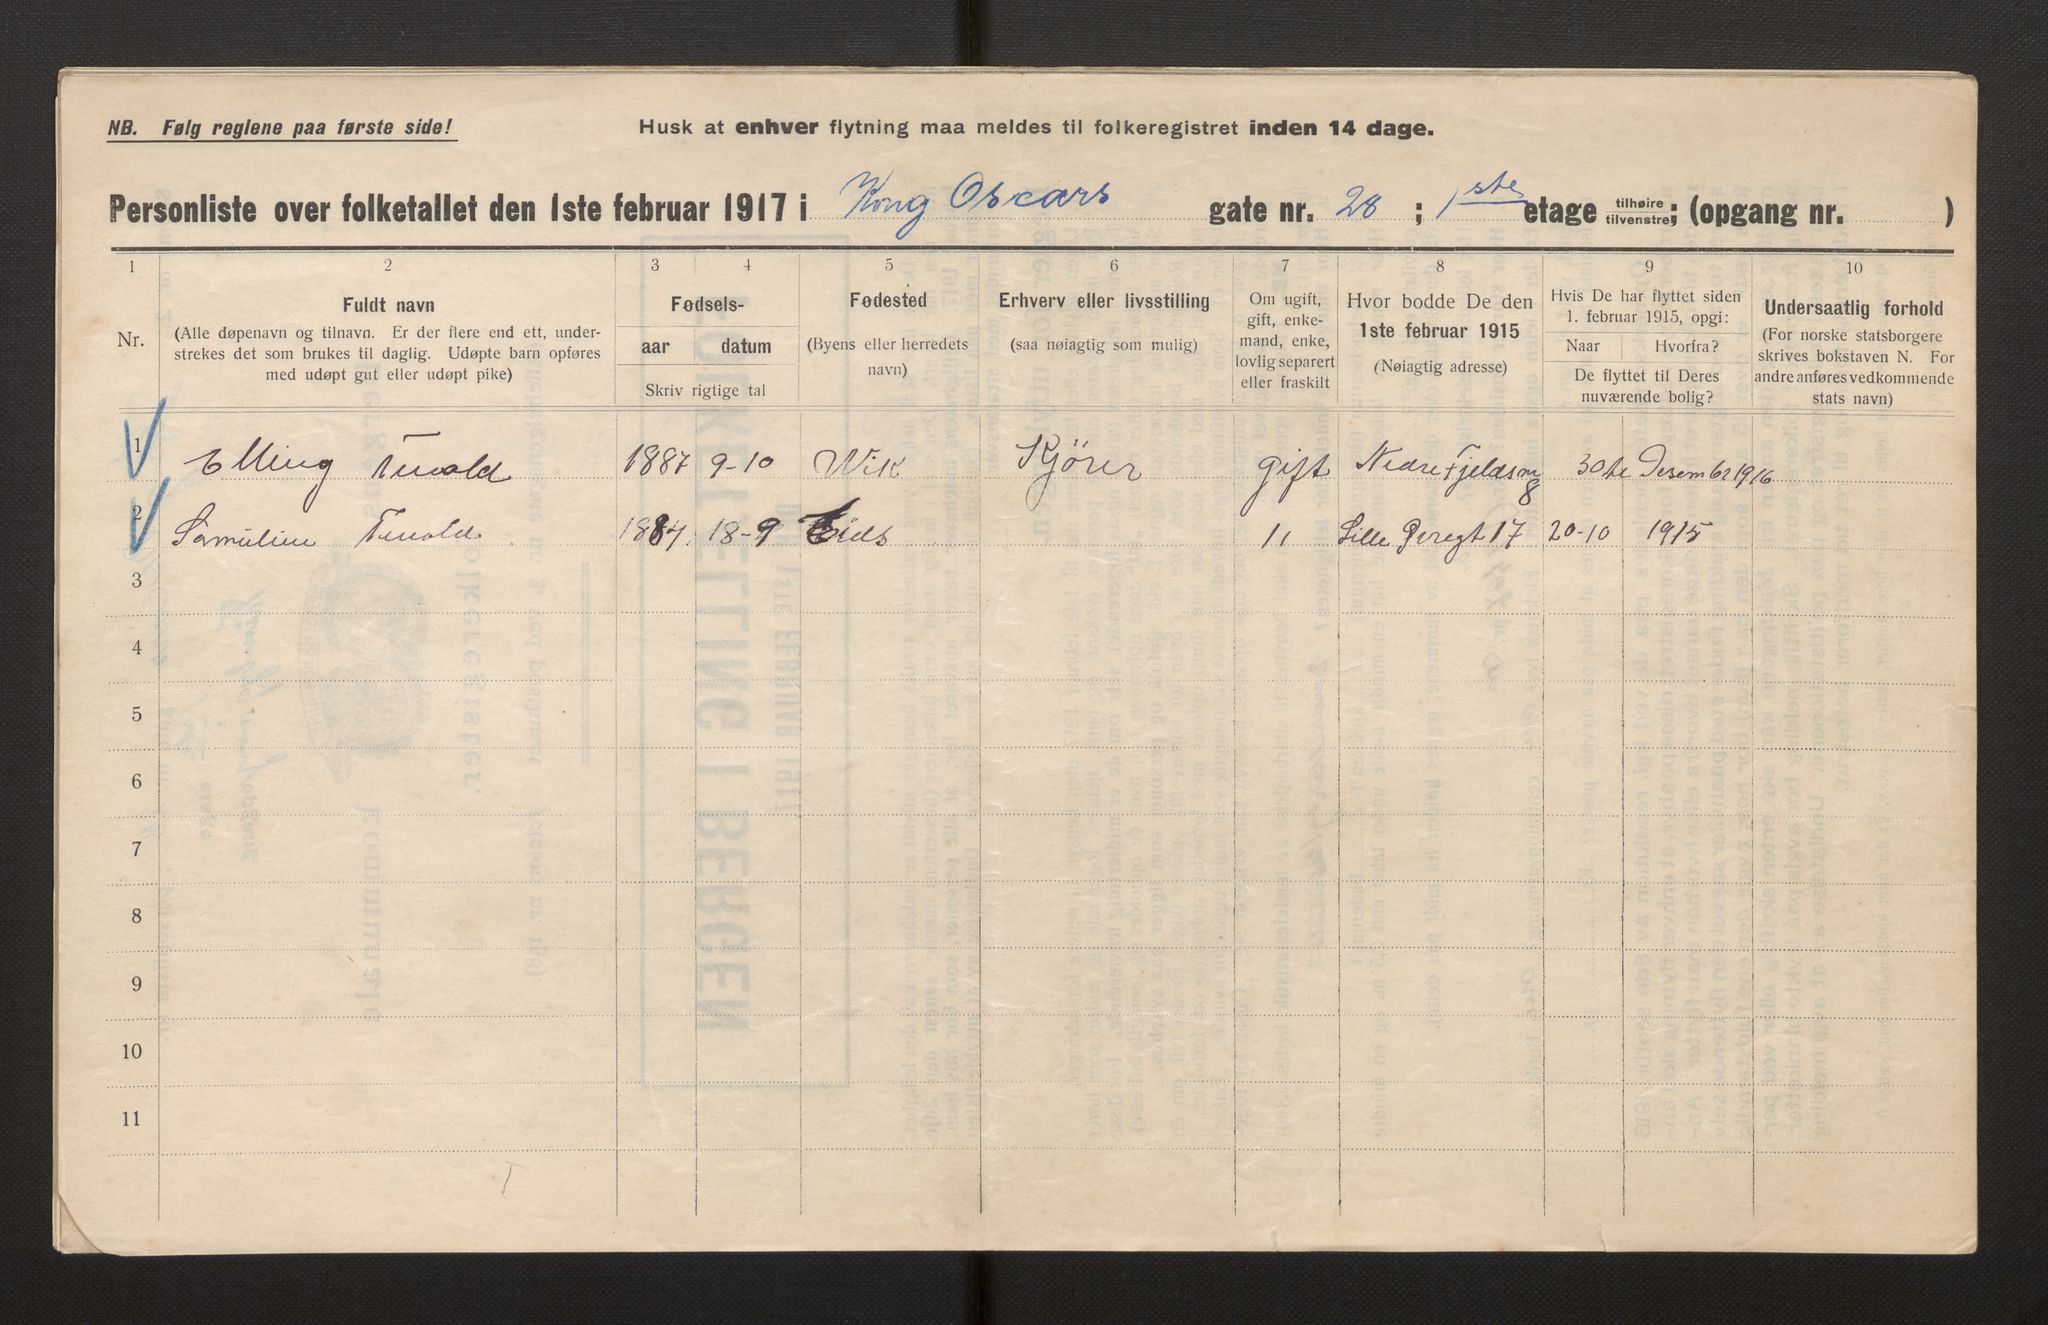 NB. Følg reglene paa første side!
Husk at enhver flytning maa meldes til folkeregistret inden 14 dage.
Personliste over folketallet den 1ste februar 1917 i Kong Oscars gate nr. 28 ; 1ste etage tilhøire tilvenstre ; (opgang nr. )
1 2 3 4 5 6 7 8 9 10
Nr.
Fuldt navn
(Alle døpenavn og tilnavn. Er der flere end ett, under-
strekes det som brukes til daglig. Udøpte barn opføres
med udøpt gut eller udøpt pike)
Fødsels-
aar datum
Skriv rigtige tal
Fødested
(Byens eller herredets
navn)
Erhverv eller livsstilling
(saa nøiagtig som mulig)
Om ugift,
gift, enke-
mand, enke,
lovlig separert
eller fraskilt
Hvor bodde De den
1ste februar 1915
(Nøiagtig adresse)
Hvis De har flyttet siden
1. februar 1915, opgi:
Naar Hvorfra?
De flyttet til Deres
nuværende bolig?
Undersaatlig forhold
(For norske statsborgere
skrives bokstaven N. For
andre anføres vedkommende
stats navn)
1 Elling 1887 9-10 Wik Kjörer gift Nedre Fjeldsm 8 30te Desember 1916
2 1884 18-9 Eids 11 Lille 17 20-10 1915
3
4
5
6
7
8
9
10
11